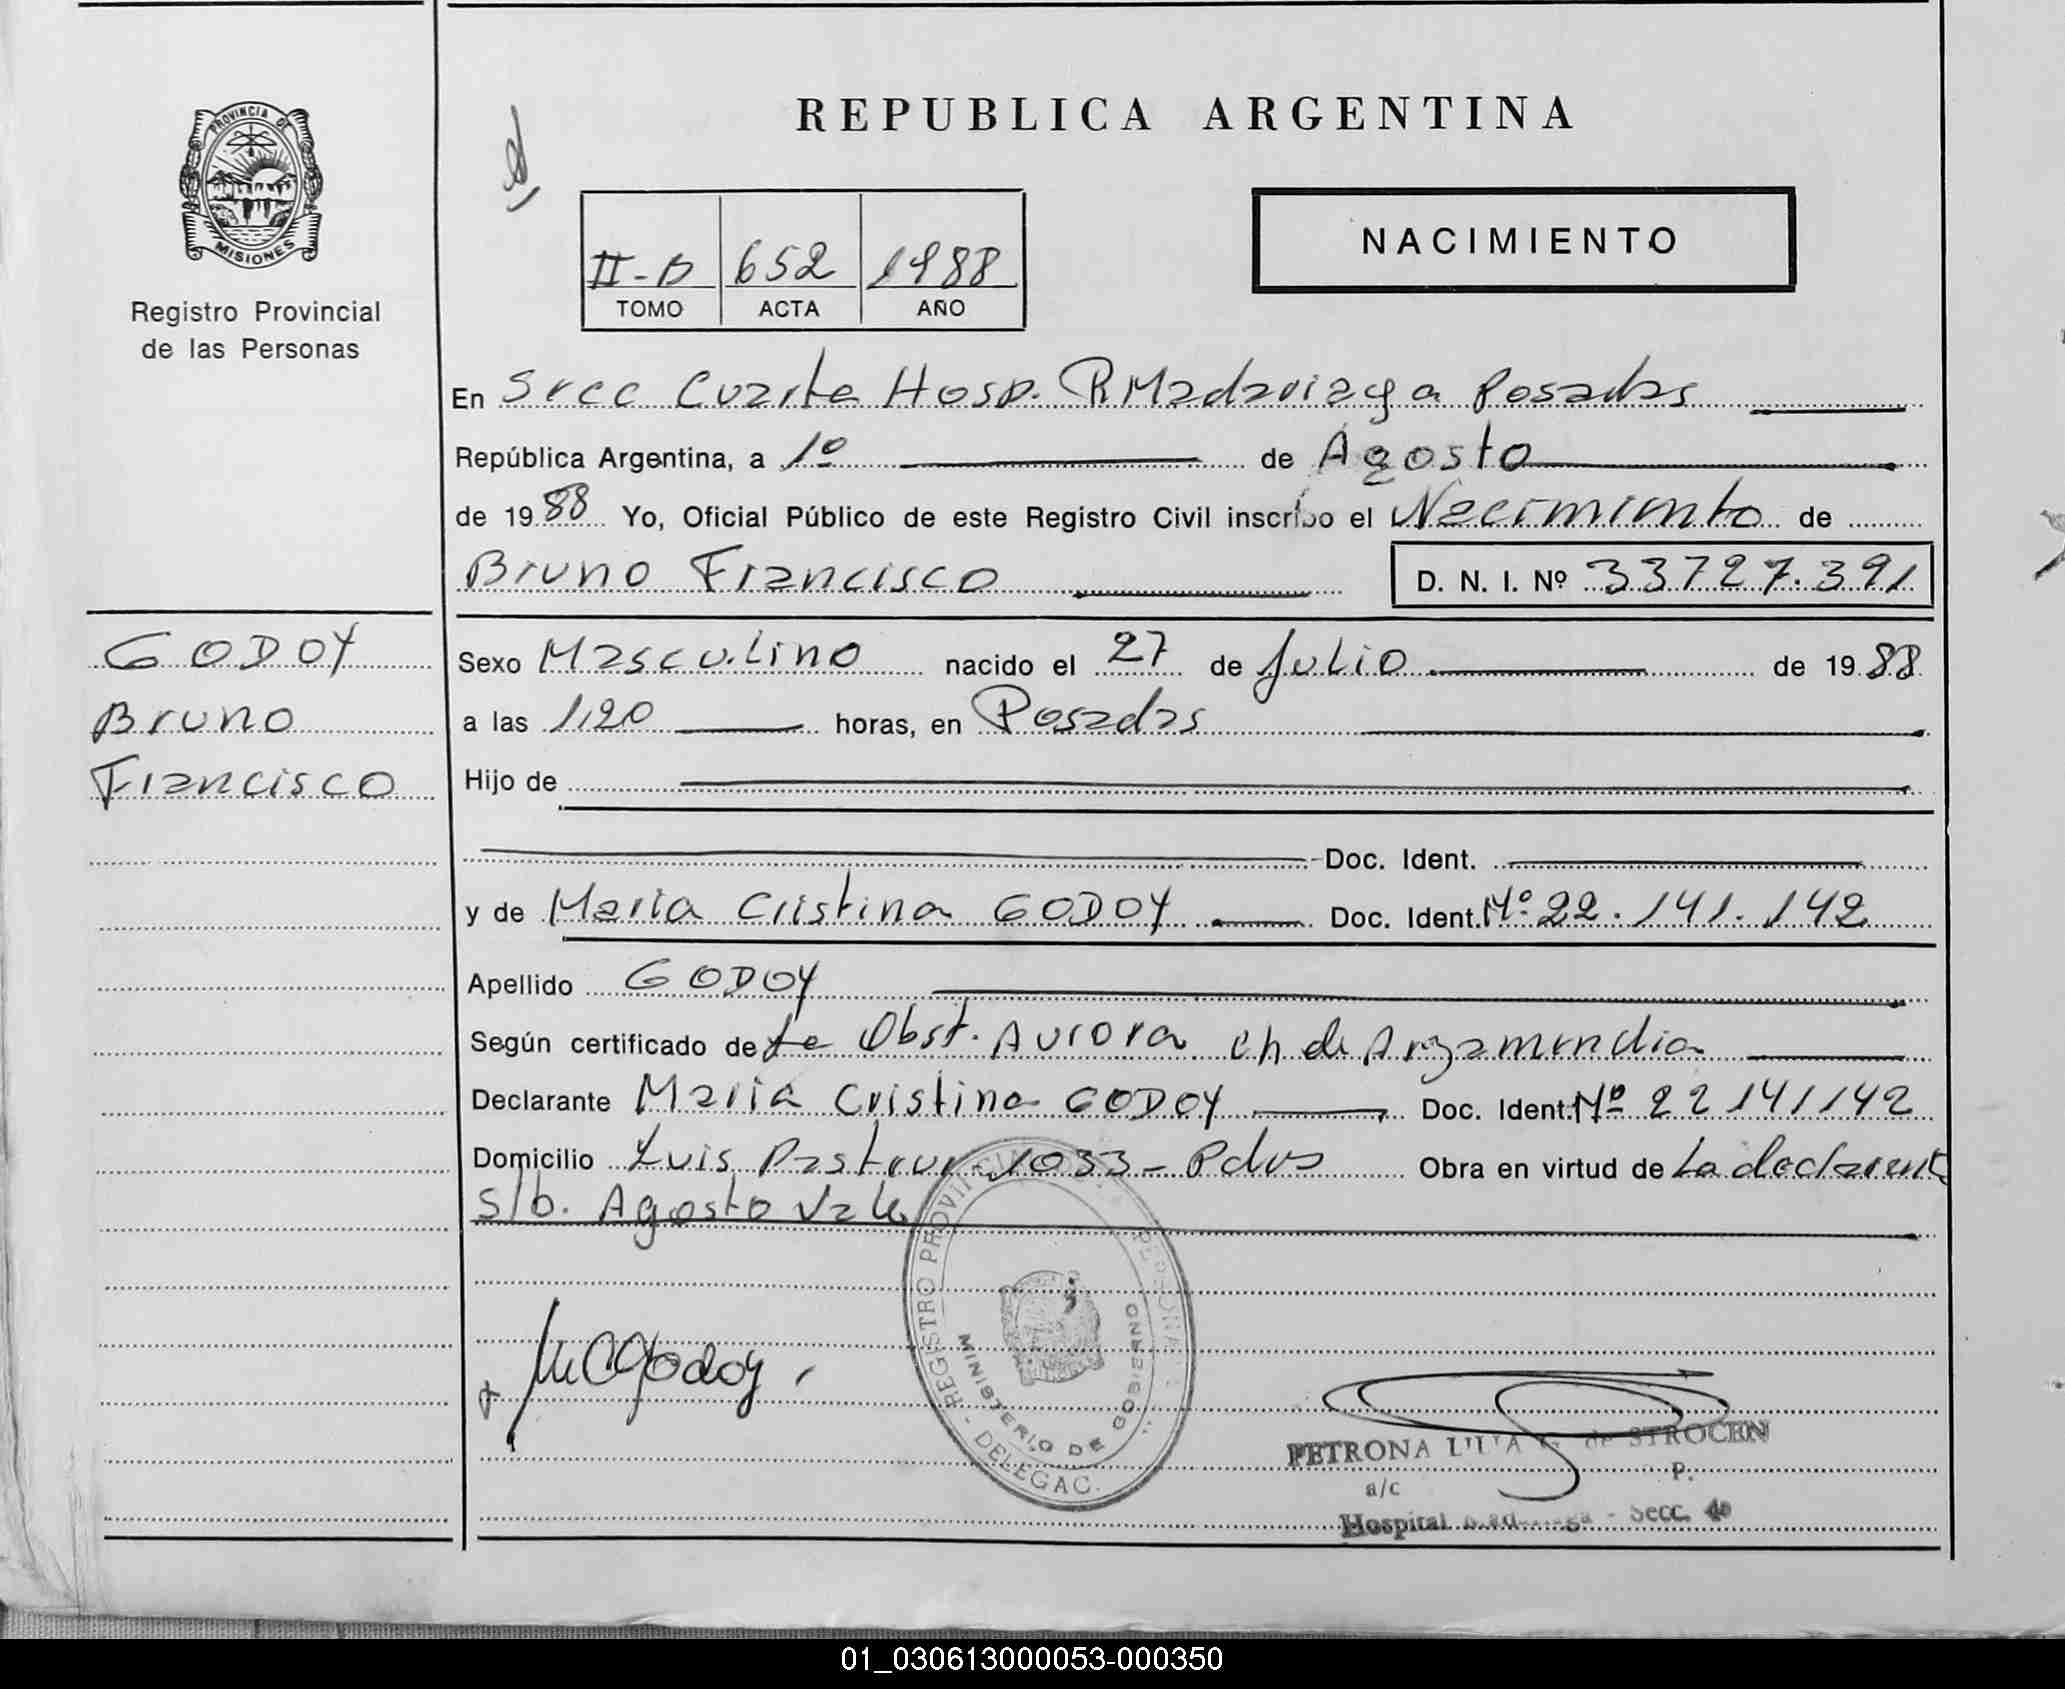 PROVINCIA DE
MISIONES
Registro Provincial
de las Personas
REPUBLICA ARGENTINA
II-B 652 1988
TOMO ACTA AÑO
NACIMIENTO
En Secc Cuarta Hosp. R Madariaga Posadas
República Argentina, a 1º de Agosto
de 1988 Yo, Oficial Público de este Registro Civil inscribo el Nacimiento de
Bruno Francisco D. N. I. Nº 33727.391
GODOY
Bruno
Francisco
Sexo Masculino nacido el 27 de Julio de 1988
a las 1,20 horas, en Posadas
Hijo de
Doc. Ident.
y de Maria Cristina GODOY Doc. Ident. Nº 22.141.142
Apellido GODOY
Según certificado de La Obst. Aurora Ch de Arzamendia
Declarante Maria Cristina GODOY Doc. Ident. Nº 22141142
Domicilio Luis Pasteur 1033 - Pdas Obra en virtud de La declarante
S/b. Agosto Vale
MCGodoy
REGISTRO PROVINCIAL PERSONAS
MINISTERIO DE GOBIERNO
DELEGAC.
PETRONA de STROCEN
a/c P.
Hospital - Secc. 4a
01_030613000053-000350